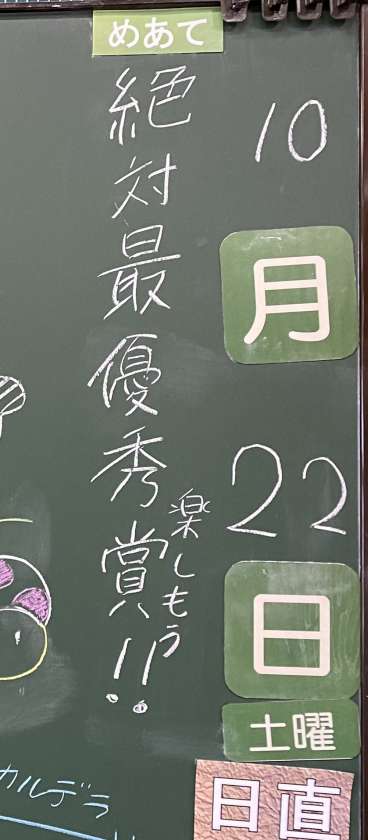 10月22日
土曜
日直
めあて
絶対最優秀賞!!
楽しもう
カルデラ